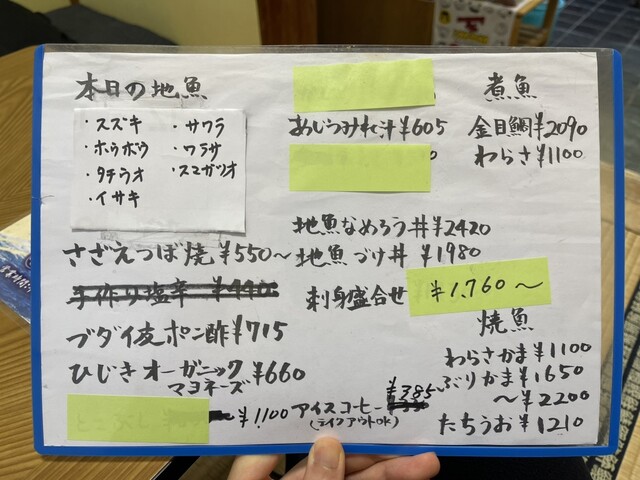 本日の地魚
・スズキ ・サワラ
・ホウボウ ・ワラサ
・タチウオ ・スマガツオ
・イサキ
さざえつぼ焼 ¥550〜
手作り塩辛 ¥440
ブダイ皮ポン酢 ¥715
ひじきオーガニックマヨネーズ ¥660
¥1,100
あじつみれ汁 ¥605
地魚なめろう丼 ¥2420
地魚づけ丼 ¥1980
刺身盛合せ ¥1,760〜
アイスコーヒー ¥385
(テイクアウトOK)
煮魚
金目鯛 ¥2090
わらさ ¥1100
焼魚
わらさかま ¥1100
ぶりかま ¥1650
〜¥2200
たちうお ¥1210